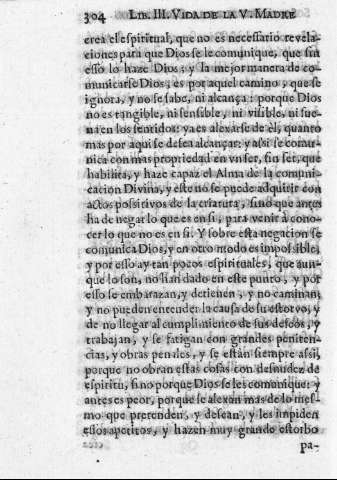 304 LIB. III. VIDA DE LA V. MADRE
crea el espiritual, que no es necessario revela-
ciones para que Dios se le comunique, que sin
esso lo haze Dios; y la mejor manera de co-
municarse Dios, es por aquel camino, que se
ignora, y no se sabe, ni alcança: porque Dios
no es tangible, ni sensible, ni visible, ni sue-
na en los sentidos: ya es alexarse de èl, quanto
mas por aqui se desea alcançar: y assi se comu-
nica con mas propriedad en vn ser, sin ser, que
habilita, y haze capaz el Alma de la comuni-
cacion Divina, y este no se puede adquirir con
actos possitivos de la criatura, sino que antes
ha de negar lo que es en si, para venir à cono-
cer lo que no es en si. Y sobre esta negacion se
comunica Dios, y en otro modo es impossible,
y por esso ay tan pocos espirituales, que aun-
que lo son, no han dado en este punto, y por
esso se embarazan, y detienen, y no caminan;
y no pueden entender la causa de su estorvo, y
de no llegar al cumplimiento de sus deseos, y
trabajan, y se fatigan con grandes peniten-
cias, y obras penales, y se estàn siempre assi,
porque no obran estas cosas con desnudez de
espiritu, sino porque Dios se les comunique: y
antes es peor, porque se alexan mas de lo mes-
mo que pretenden, y desean, y les impiden
essos apetitos, y hazen muy grande estorbo
pa-